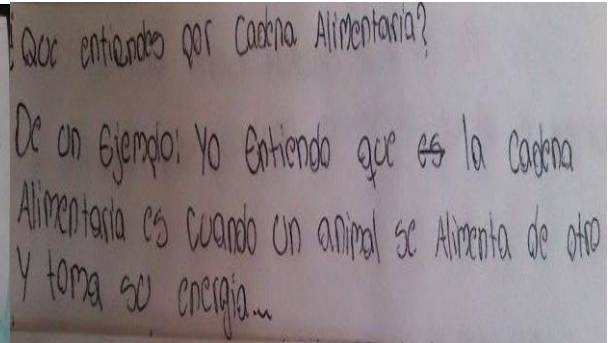 ¿Que entiendes por Cadena Alimentaria?
De un Ejemplo: Yo Entiendo que es la Cadena
Alimentaria es cuando un animal se Alimenta de otro
Y toma su energia...